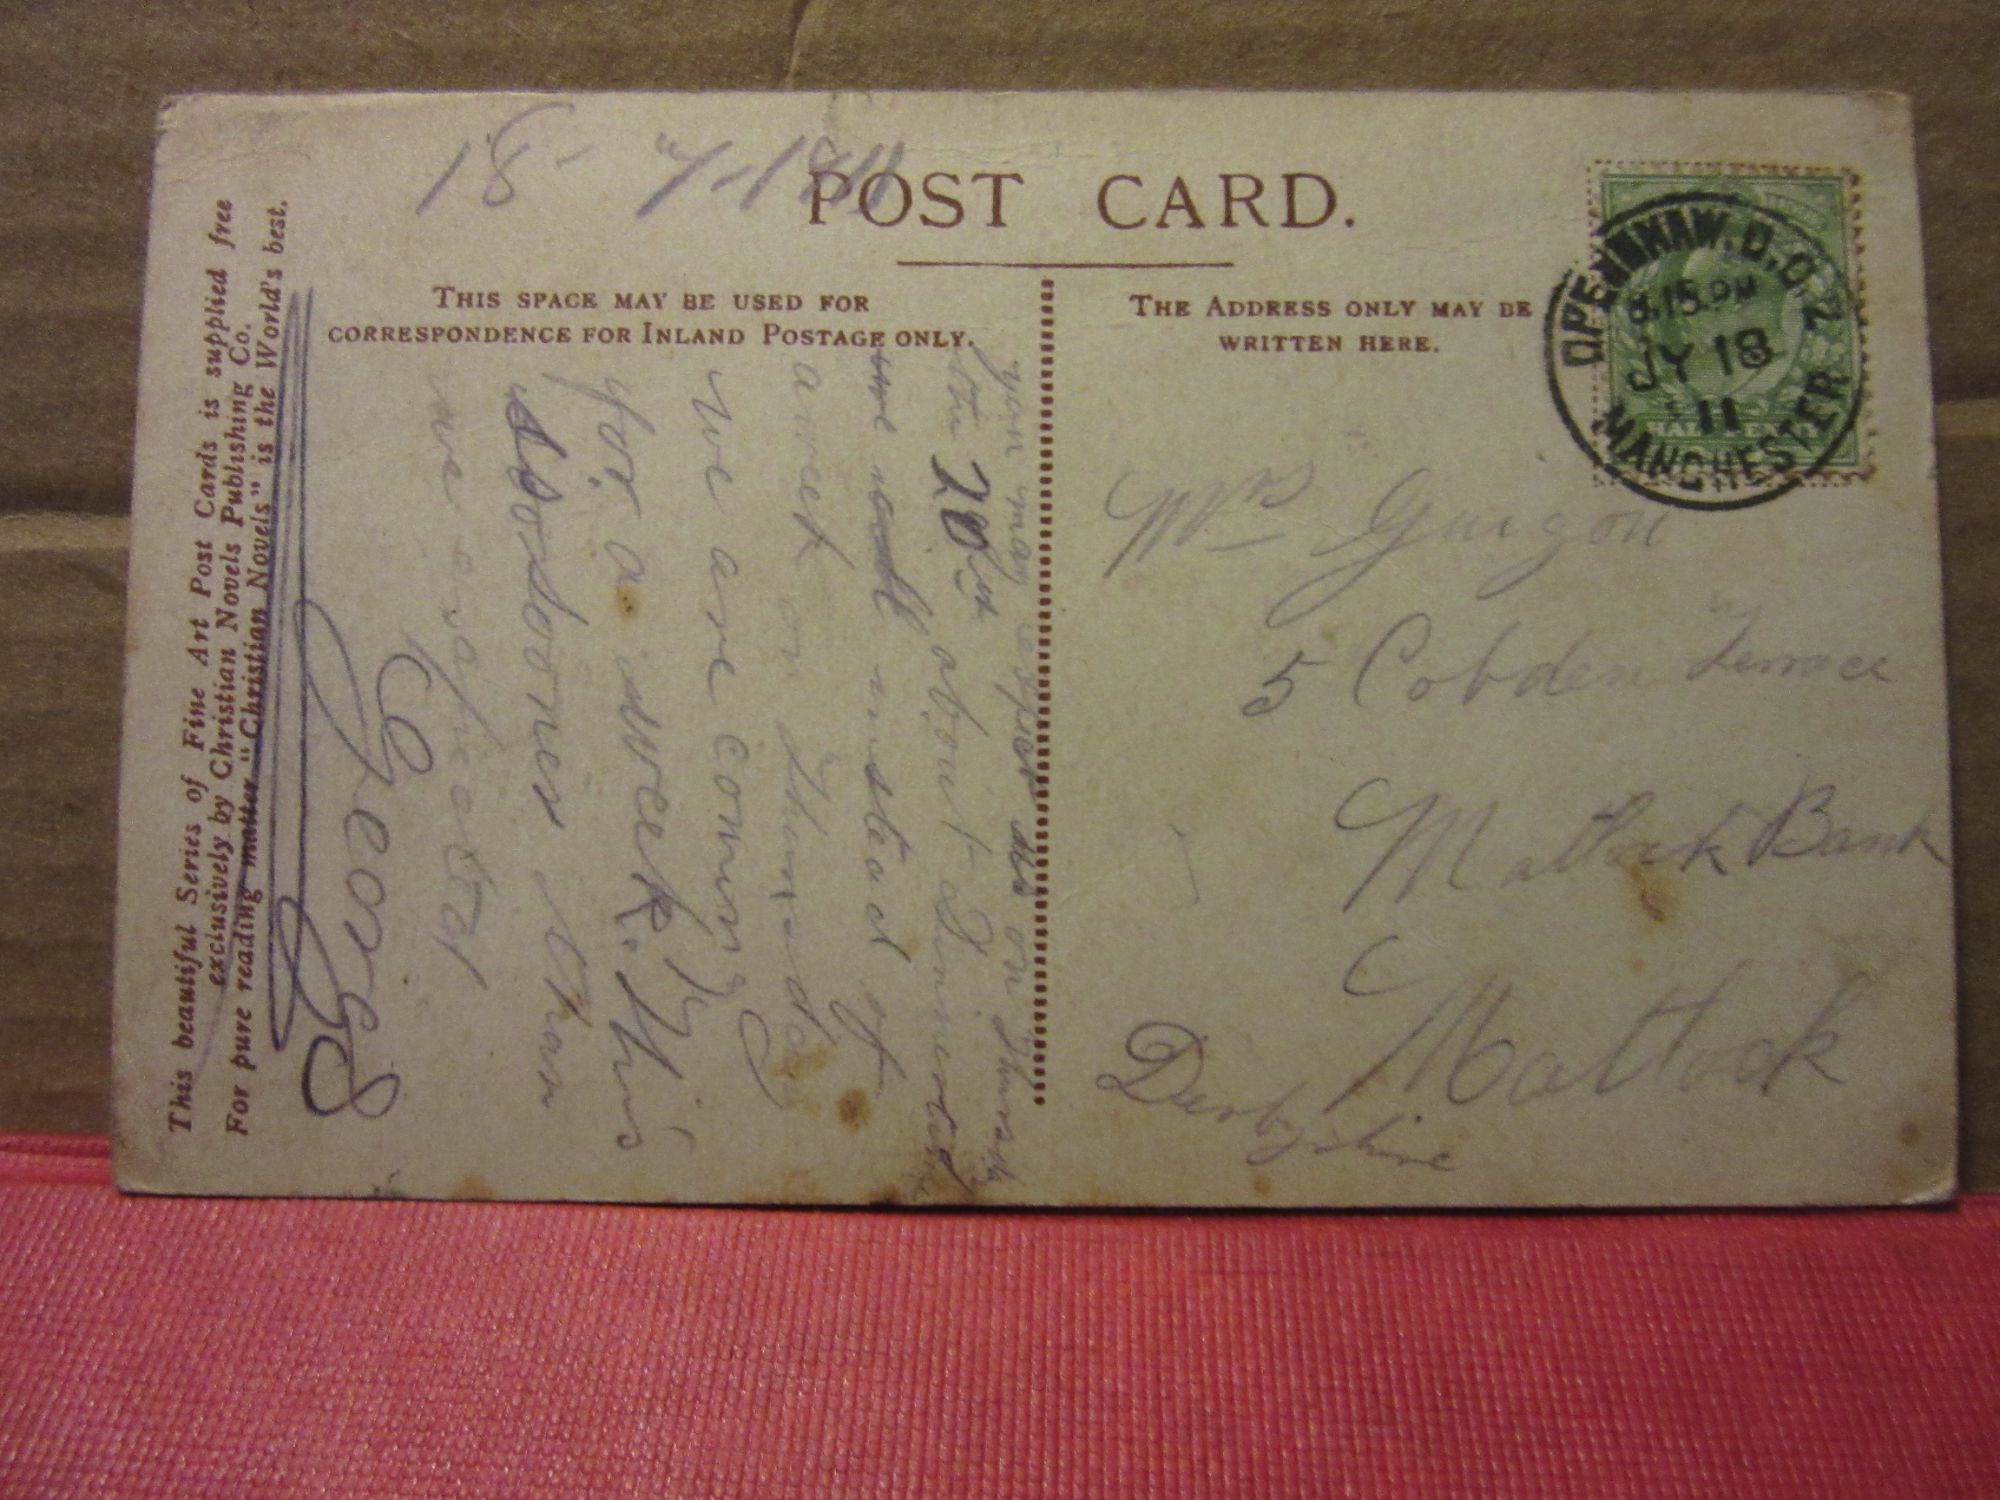 18-7-1911
POST CARD.
THIS SPACE MAY BE USED FOR
CORRESPONDENCE FOR INLAND POSTAGE ONLY.
THE ADDRESS ONLY MAY BE
WRITTEN HERE.
OPENSHAW.
8.15.PM
JY 18
11
MANCHESTER
HALFPENNY
Mrs Guigon
5 Cobden Terrace
Matlock Bank
Matlock
Derbyshire
you may expect us on Thursday
the 20th about Dinnertime
we shall instead of
a week on Thursday
we are coming
for a week. This
is sooner than
we expected
George
This beautiful Series of Fine Art Post Cards is supplied free
exclusively by Christian Novels Publishing Co.
For pure reading matter "Christian Novels" is the World's best.